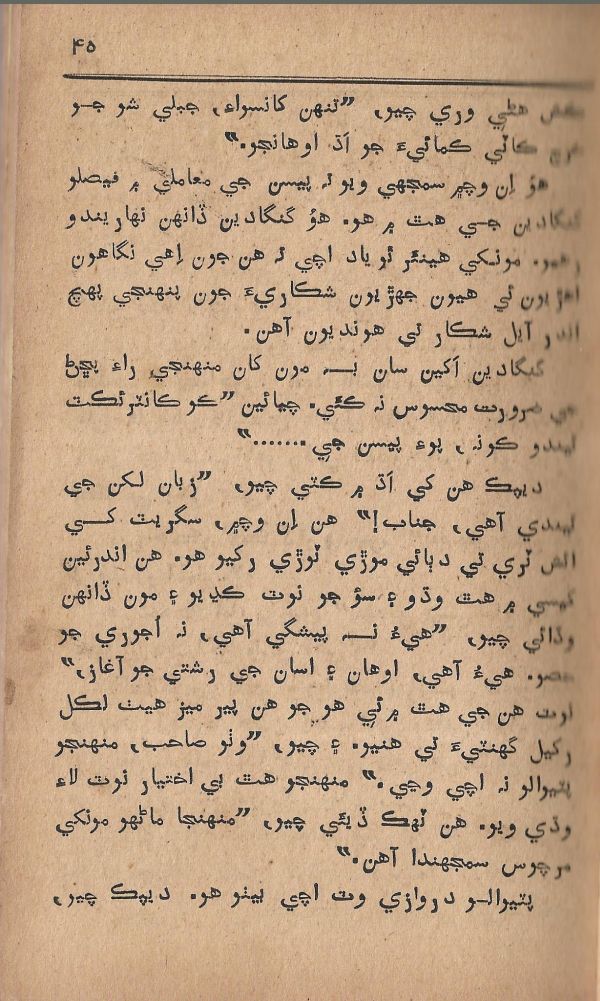 ۴۵
هڻي وري چيو، ”تنهن کانسواءِ، جبلي شو جو
ڪاٽي ڪمائيءَ جو اَڌ اوهانجو.“
هوُ اِن وچ۾ سمجهي ويو تہ پيسن جي معاملي ۾ فيصلو
گنگادين جي هٿ ۾ هو. هوُ گنگادين ڏانهن نهاريندو
رهيو. مونکي هينئر ئو ياد اچي تہ هن جون اِهي نگاهون
اهڙيون ئي هيون جهڙيون شڪاريءَ جون پنهنجي پهچ
اندر آيل شڪار تي هونديون آهن.
گنگادين اَکين سان بہ مون کان منهنجي راءِ پڇڻ
جي ضرورت محسوس نہ ڪئي. چيائين ”ڪو ڪانٽرئڪٽ
ٿيندو ڪونہ، پوءِ پيسن جي.......“
ديپڪ هن کي اَڌ ۾ ڪٽي چيو، ”زبان لکن جي
ٿيندي آهي، جناب!“ هن اِن وچ۾، سگريٽ کي
ائش ٽري تي دٻائي موڙي ٽوڙي رکيو هو. هن اندرئين
کيسي ۾ هٿ وڌو ۽ سؤ جو نوٽ ڪڍيو ۽ مون ڏانهن
وڌائي چيو، ”هيءُ نہ پيشگي آهي، نہ اُجوري جو
حصو. هيءُ آهي، اوهان ۽ اسان جي رشتي جو آغاز،“
نوٽ هن جي هٿ ۾ ئي هو جو هن پير ميز هيٺ لڪل
رکيل گهنٽيءَ تي هنيو. ۽ چيو، ”وٺو صاحب، منهنجو
پٽيوالو نہ اچي وڃي.“ منهنجو هٿ بي اختيار نوٽ لاءِ
وڌي ويو. هن ٽهڪ ڏيئي چيو، ”منهنجا ماڻهو مونکي
سمجهندا آهن.“
پٽيوالو دروازي وٽ اچي بيٺو هو. ديپڪ چيو،